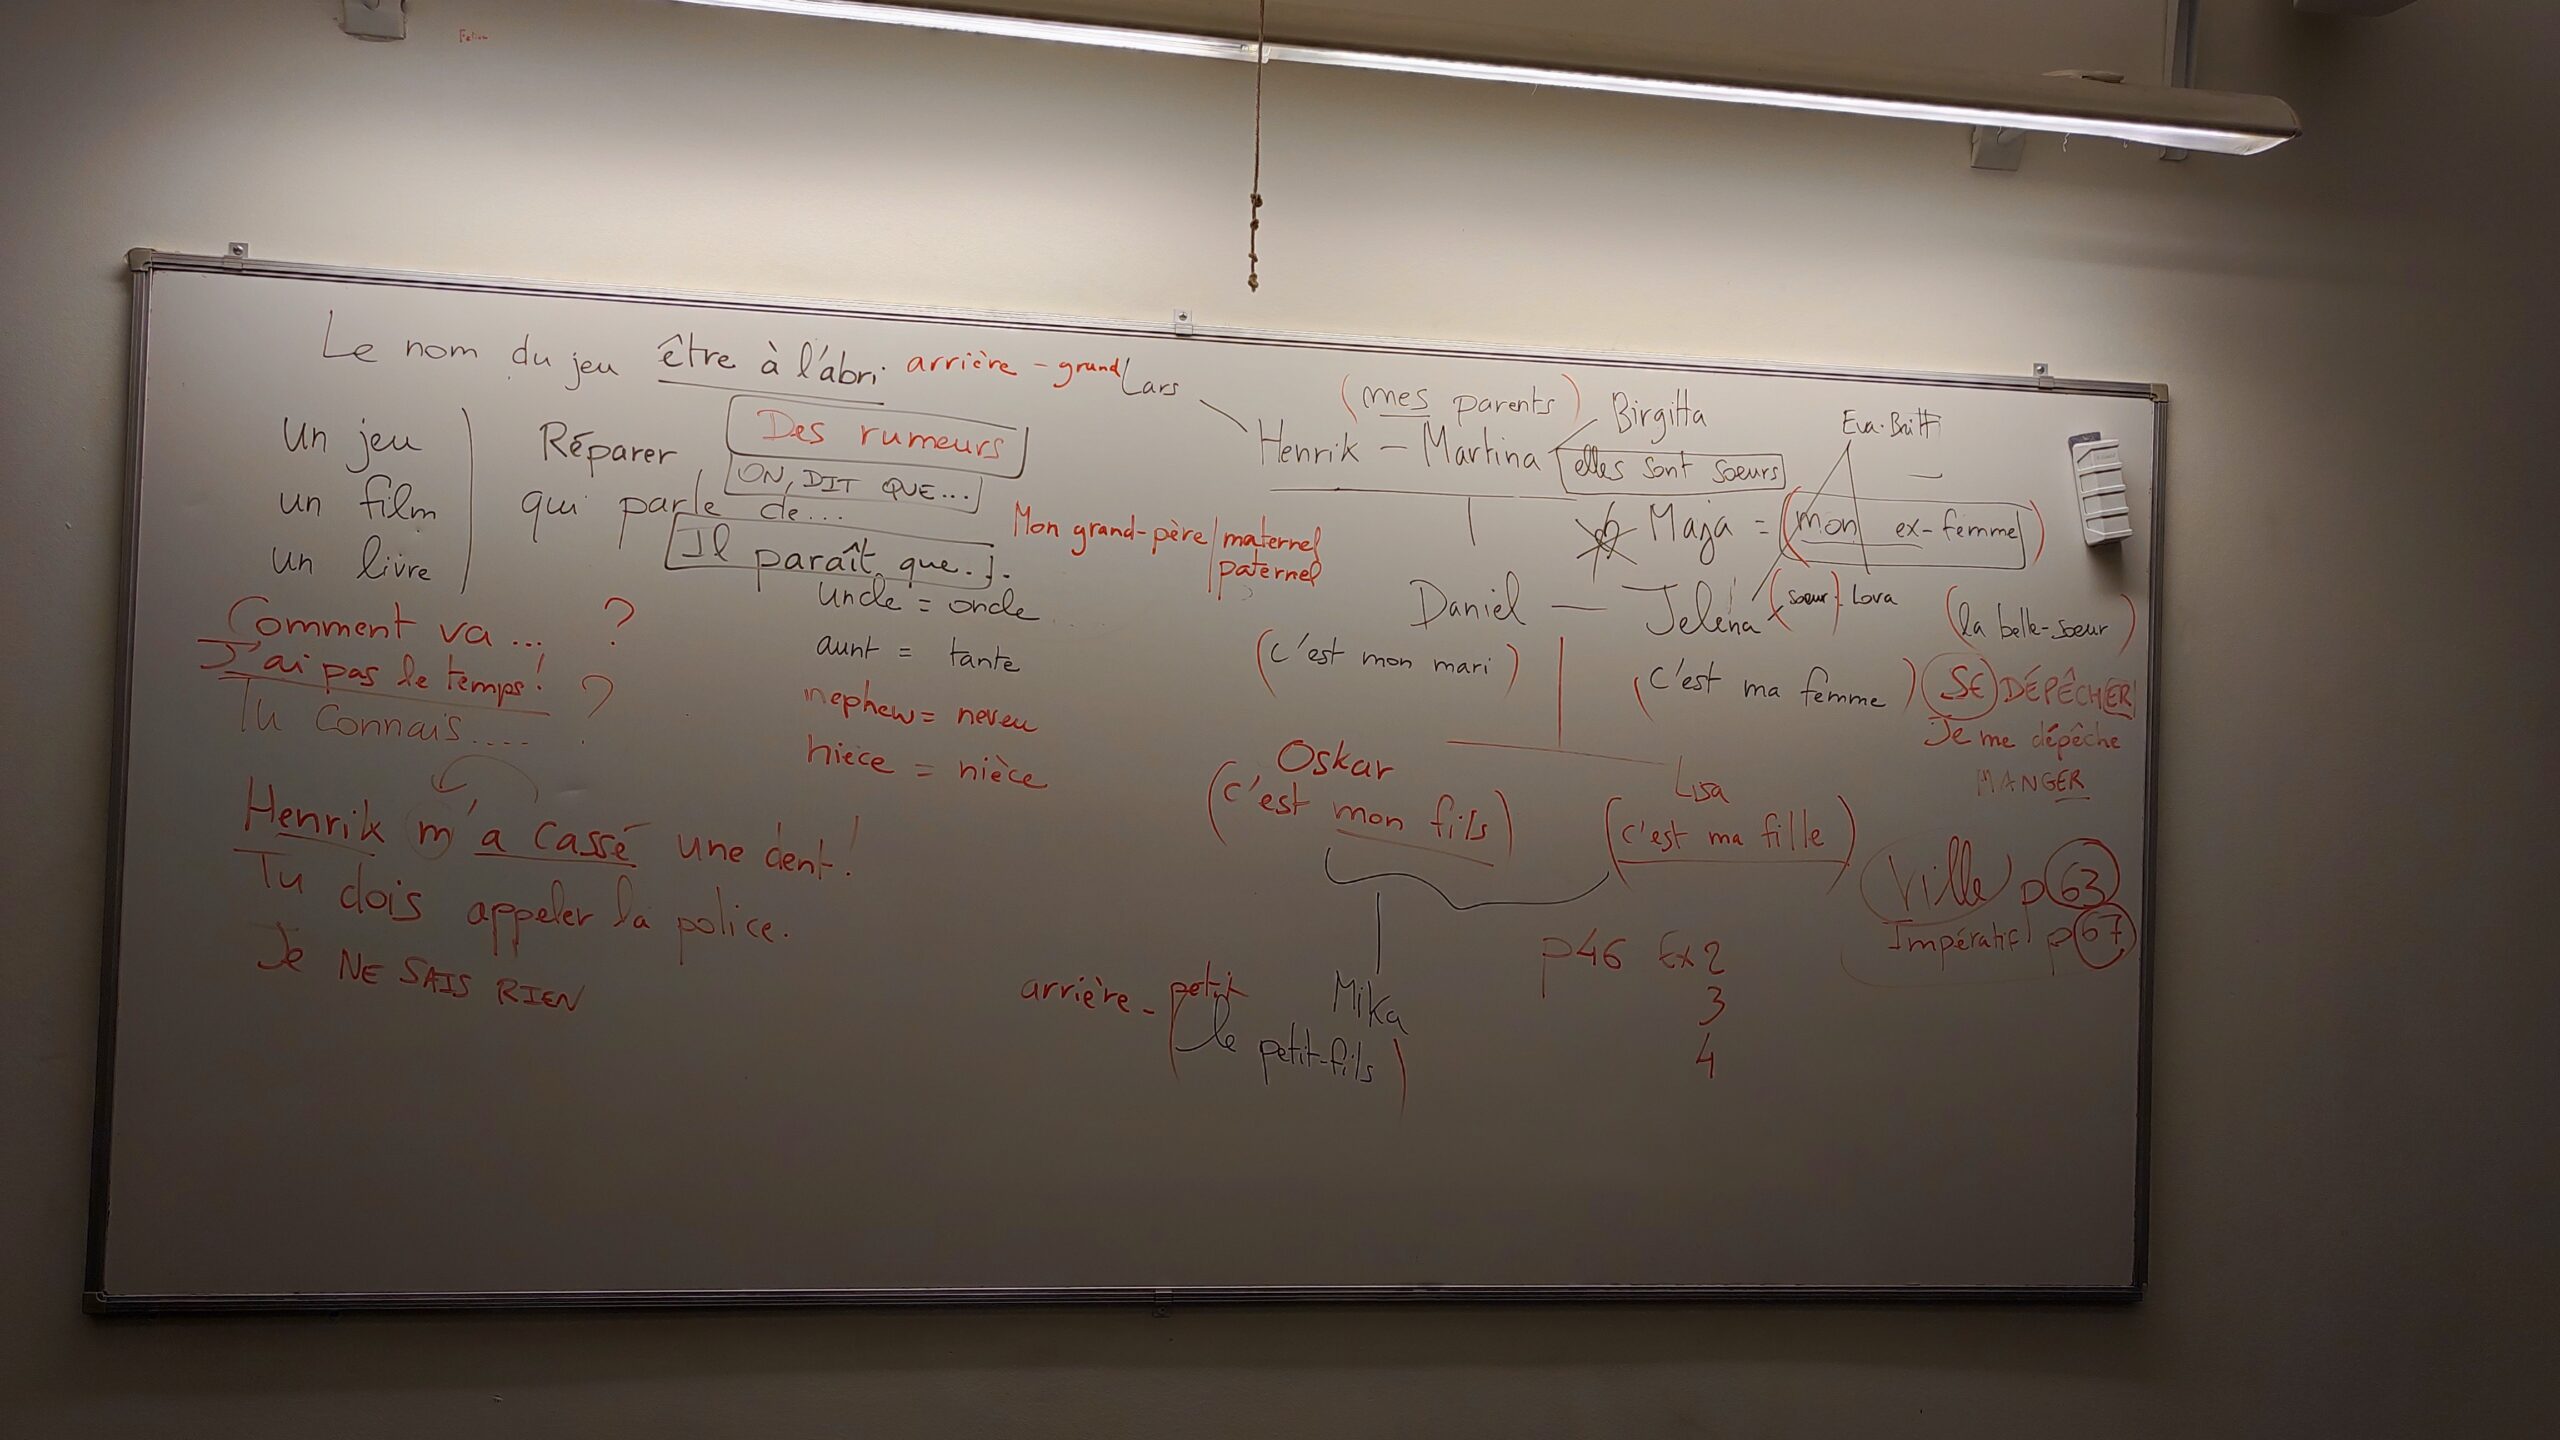 Le nom du jeu être à l'abri
arrière-grand
Un jeu
un film
un livre
Réparer
qui parle de...
Des rumeurs
ON DIT QUE...
Il paraît que...
Comment va... ?
J'ai pas le temps!
Tu connais.... ?
Henrik m'a cassé une dent!
Tu dois appeler la police.
Je NE SAIS RIEN
uncle = oncle
aunt = tante
nephew = neveu
niece = nièce
Mon grand-père maternel
paternel
Lars
(mes parents)
Birgitta
Henrik - Martina
elles sont soeurs
Maja = (mon ex-femme)
Daniel - Jelena (soeur) Lova
(la belle-soeur)
(c'est mon mari)
(c'est ma femme)
Oskar
(c'est mon fils)
Lisa
(c'est ma fille)
Mika
arrière-petit
(le petit-fils)
SE DÉPÊCHER
Je me dépêche
MANGER
Ville p 63
Impératif p 67
p46 Ex 2
3
4